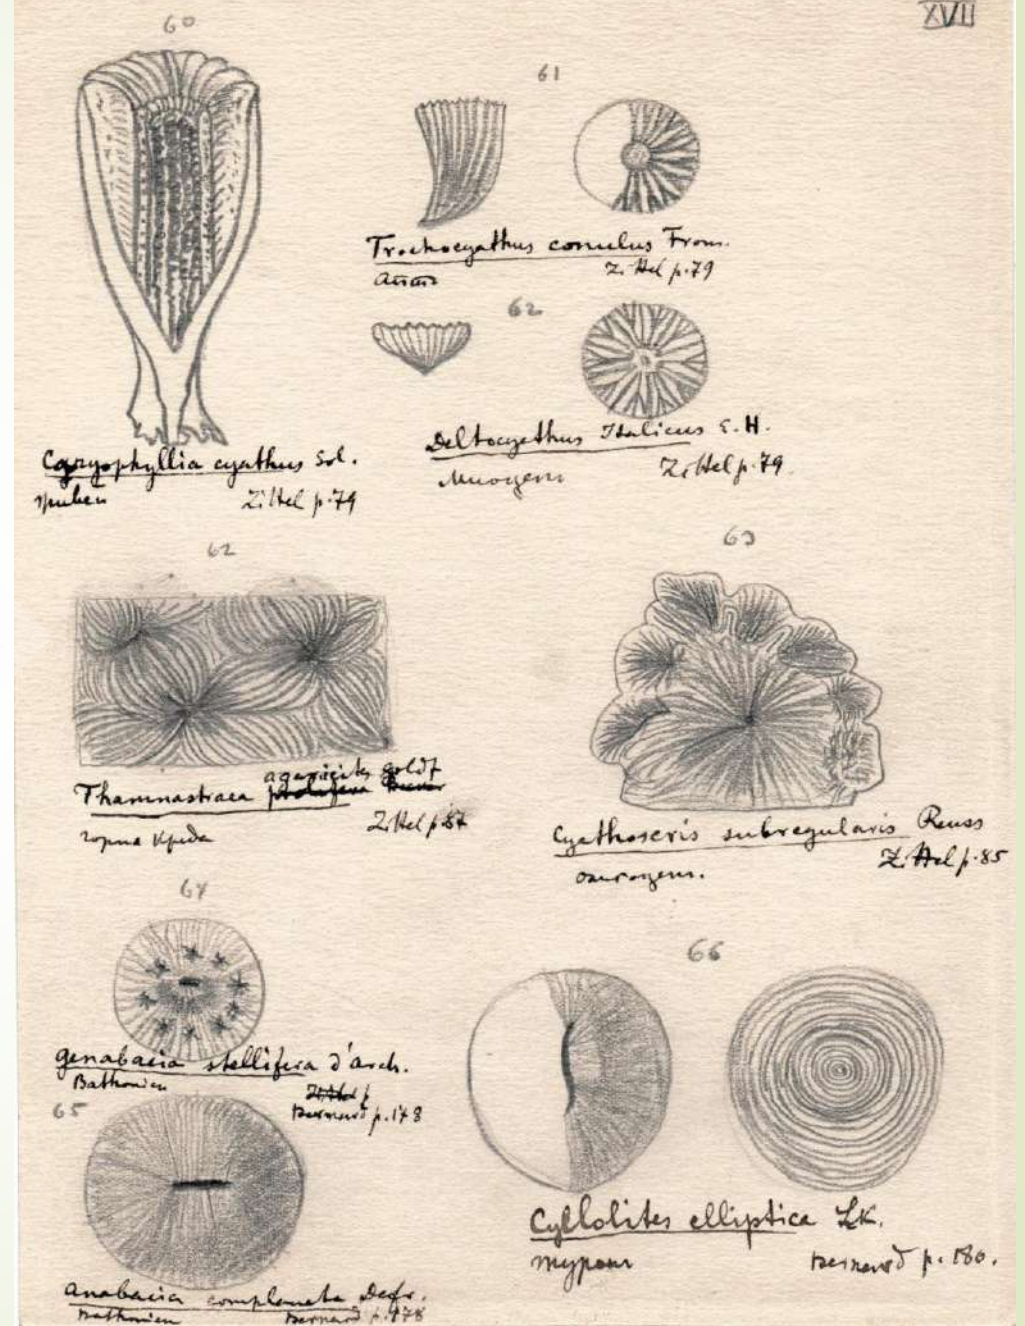 XVII
60
Caryophyllia cyathus Sol.
Zittel p.79
61
Trochocyathus conulus From.
Zittel p.79
62
Deltocyathus Italicus E. H.
Миоцен
Zittel p.79
62
Thamnastraea agaricites Goldf
горна Креда
Zittel p.87
63
Cyathoseris subregularis Reuss
Zittel p.85
64
Genabacia stellifera d'Arch.
Bathonien
Bernard p.178
65
Anabacia complanata Defr.
Bathonien
Bernard p.178
66
Cyllolites elliptica Lk.
турон
Bernard p.180.